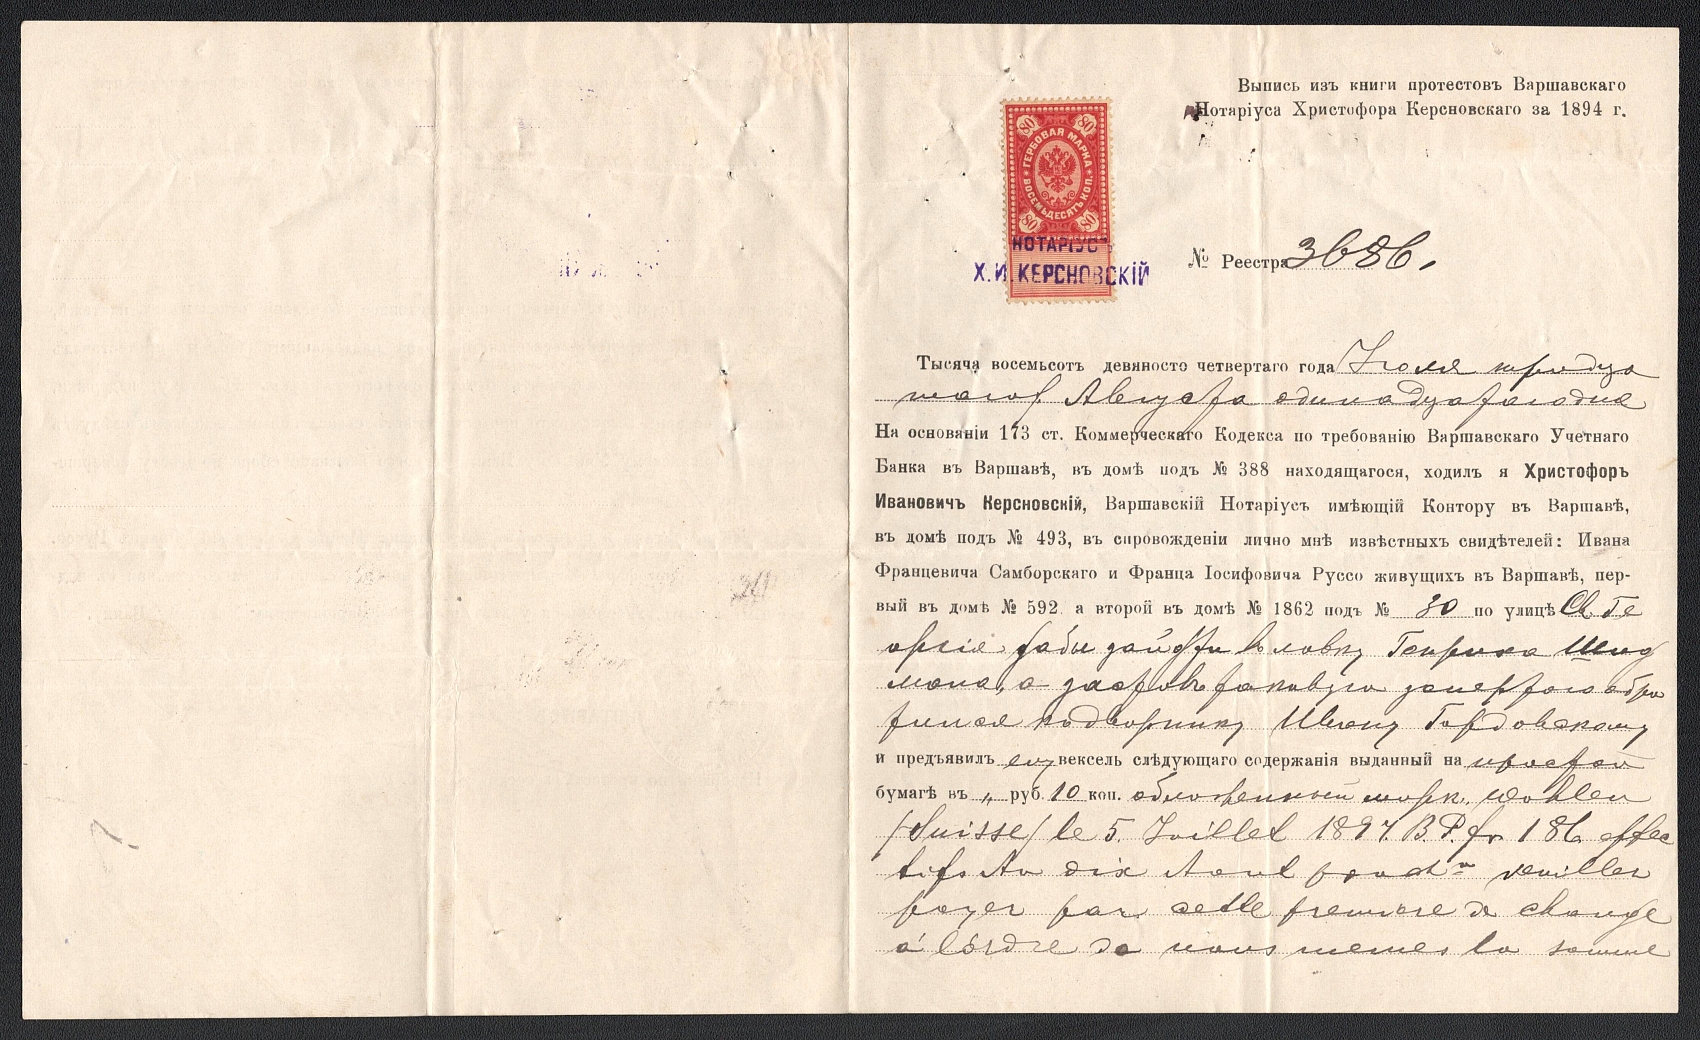 Выпись изъ книги протестовъ Варшавскаго
Нотаріуса Христофора Керсновскаго за 1894 г.
80 80
ГЕРБОВАЯ МАРКА
ВОСЕМЬДЕСЯТЪ КОП.
80 80
НОТАРІУСЪ
Х. И. КЕРСНОВСКІЙ
№ Реестра 3686.
Тысяча восемьсотъ девяносто четвертаго года Іюля тридца
таго/ Августа одинадцатаго дня
На основаніи 173 ст. Коммерческаго Кодекса по требованію Варшавскаго Учетнаго
Банка въ Варшавѣ, въ домѣ подъ № 388 находящагося, ходилъ я Христофоръ
Ивановичъ Керсновскій, Варшавскій Нотаріусъ имѣющій Контору въ Варшавѣ,
въ домѣ подъ № 493, въ спровожденіи лично мнѣ извѣстныхъ свидѣтелей: Ивана
Францевича Самборскаго и Франца Іосифовича Руссо живущихъ въ Варшавѣ, пер-
вый въ домѣ № 592 а второй въ домѣ № 1862 подъ № 30 по улицѣ Св. Ге
оргія, дабы зайдти въ лавку Генриха
мана, а заставъ таковую запертою обра
тился къ дворнику Ивану
и предъявилъ ему вексель слѣдующаго содержанія выданный на простой
бумагѣ въ „ руб. 10 коп. обложенный марк. Wohlen
/Suisse/ le 5. Juillet 1894. B. P. fr 186 effec
tifs Au dix Aout proch veuillez
payer par cette premiere de change
à l'ordre de nous memes la somme